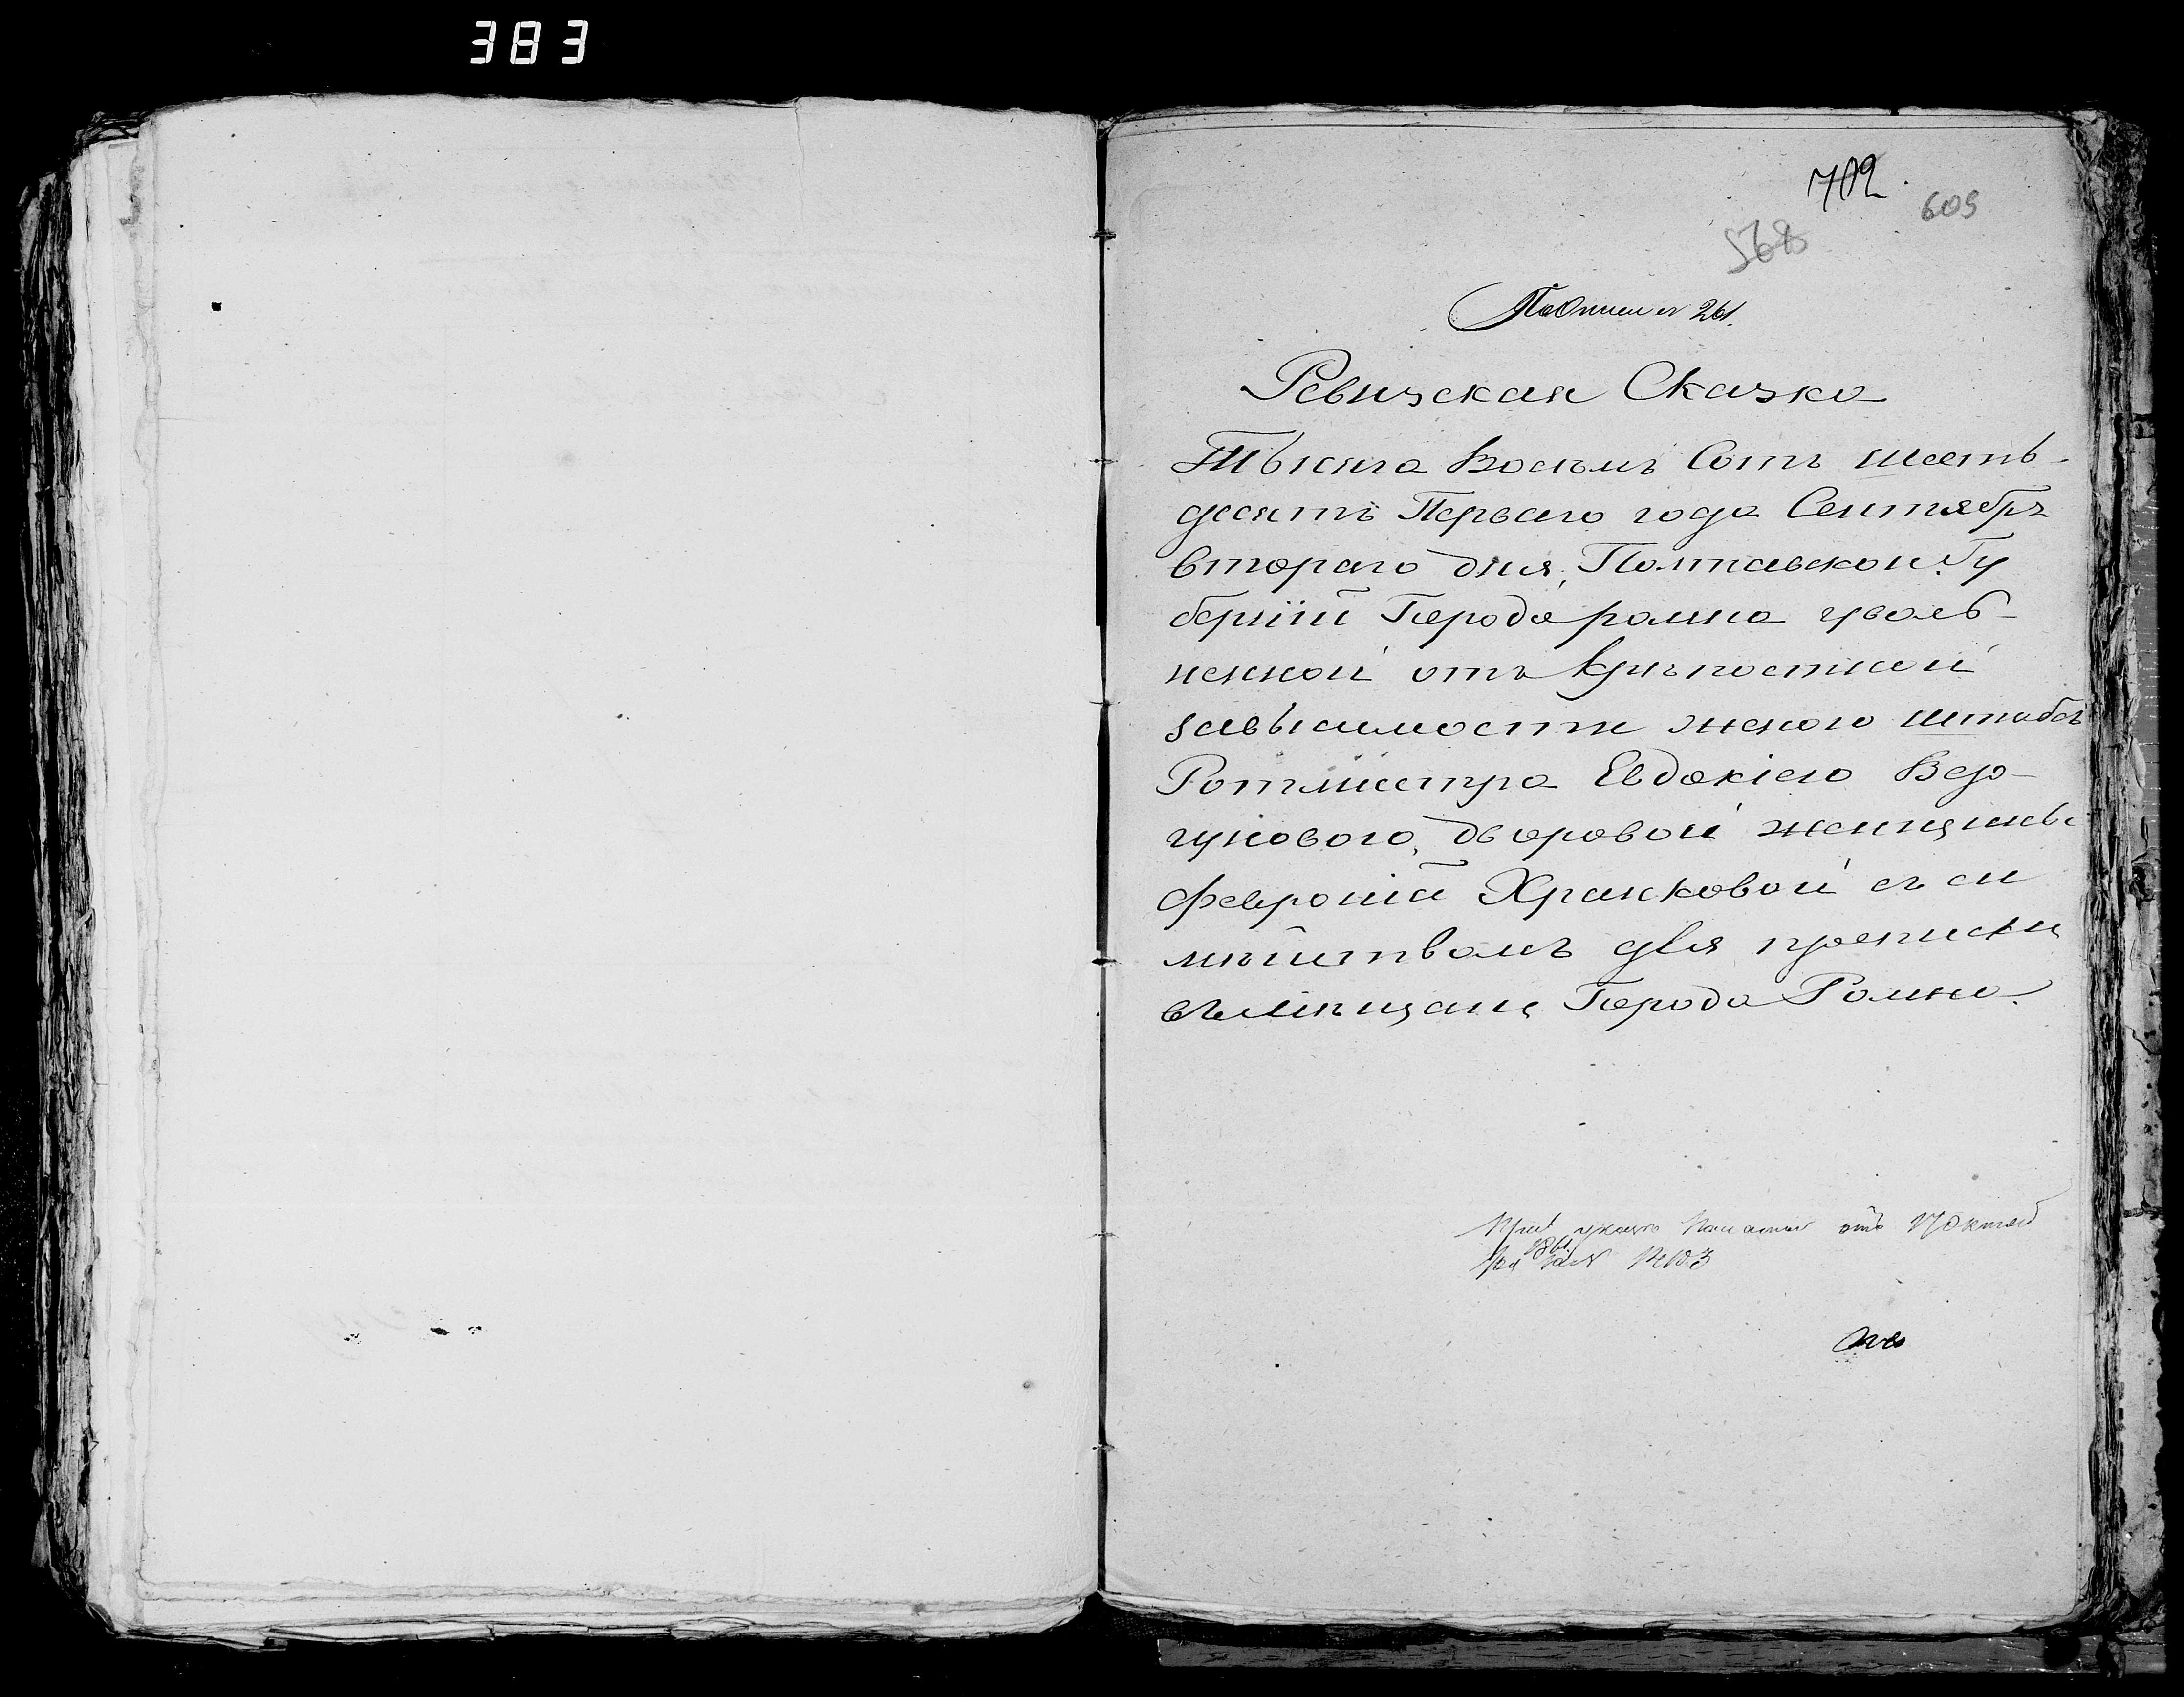 383
702
609
568
По описи № 261.
Ревизская Сказка
Тысяча Восемь Сотъ шесть-
десятъ Перваго года Сентября
втораго дня, Полтавской Гу
берніи Города ромна уволь-
ненной отъ крѣпостной
завысимости женою штабсъ
Ротмистра Евдокіею Вер-
гуновою, дворовой женщины
Февроніи Хранковой съ се
мѣйствомъ для прописки
въ мѣщане Города Ромна.
При указѣ Палаты отъ 17 Октяб
1861
года №